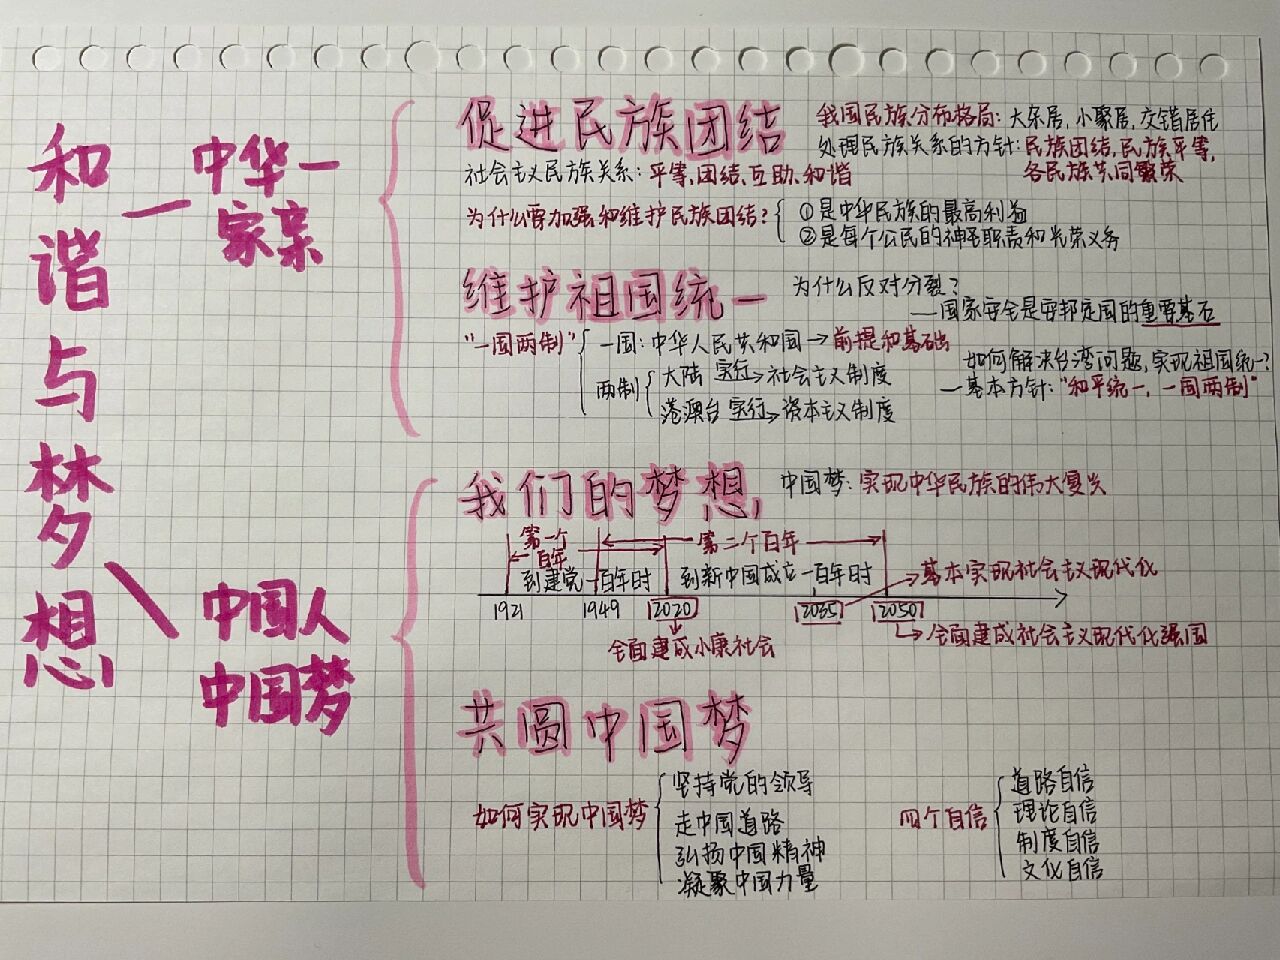 和谐与梦想
中华一
家亲
促进民族团结
我国民族分布格局:大杂居,小聚居,交错居住
处理民族关系的方针:民族团结,民族平等,
各民族共同繁荣
社会主义民族关系:平等,团结,互助,和谐
为什么要加强和维护民族团结?
①是中华民族的最高利益
②是每个公民的神圣职责和光荣义务
维护祖国统一
为什么反对分裂?
—国家安全是安邦定国的重要基石
"一国两制"
一国:中华人民共和国→前提和基础
两制
大陆 实行→社会主义制度
港澳台 实行→资本主义制度
如何解决台湾问题,实现祖国统一?
—基本方针:"和平统一,一国两制"
中国人
中国梦
我们的梦想
中国梦:实现中华民族的伟大复兴
第一个
百年
第二个百年
到建党一百年时
到新中国成立一百年时
基本实现社会主义现代化
1921 1949 2020 2035 2050
全面建成小康社会
全面建成社会主义现代化强国
共圆中国梦
如何实现中国梦
坚持党的领导
走中国道路
弘扬中国精神
凝聚中国力量
四个自信
道路自信
理论自信
制度自信
文化自信